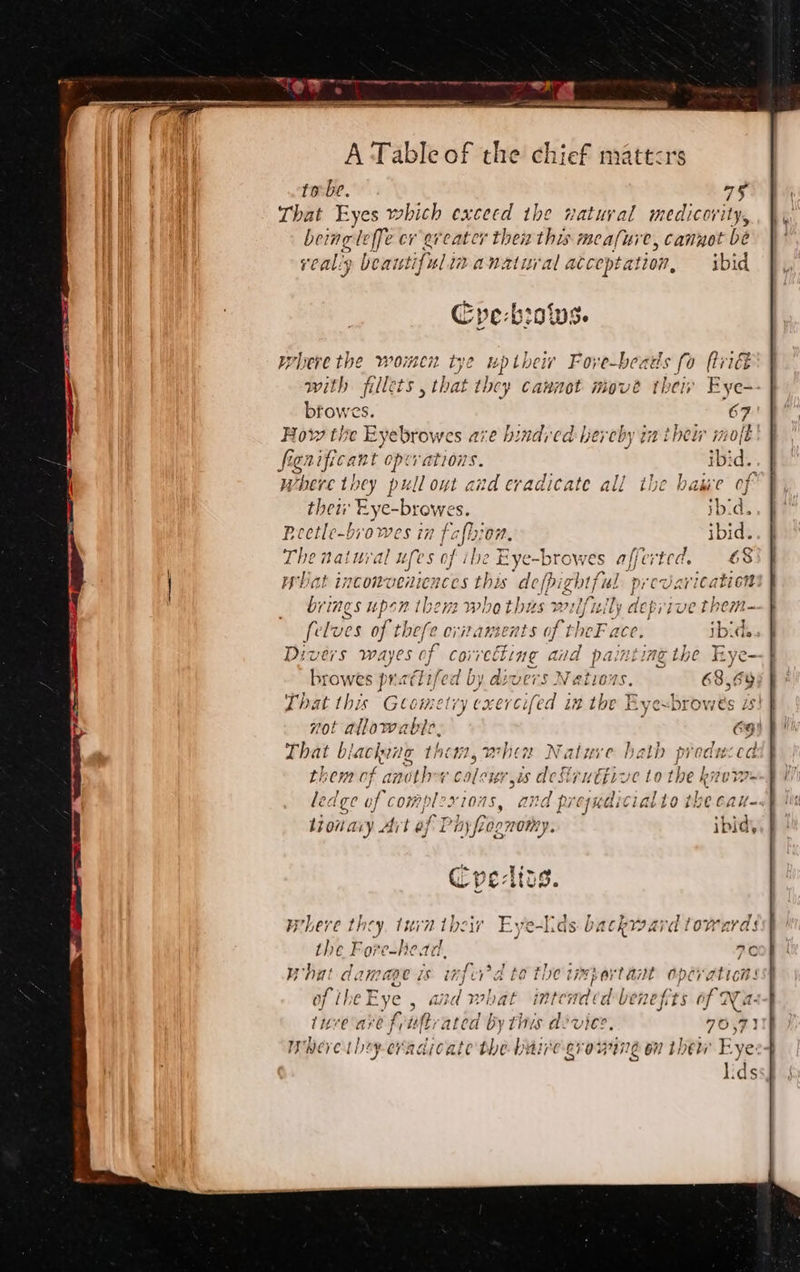 A Table of the chief matters
to be. 75
That Eyes which exceed the natural mediocrity,
being leſſe or greater then this meaſure, cannot be
really beautifull in a natural acceptation, ibid
Eye-brows.
Where the women tye up their Fore-heads ſo ſtrict
with fillets, that they cannot move their Eye-
browes. 67
How the Eyebrowes are hindred hereby in their moſt
ſignificant operations. ibid.
Where they pull out and eradicate all the haire of
their Eye-browes. ibid.
Beetle-browes in faſhion. ibid.
The natural uſes of the Eye-browes aſſerted. 68
What inconveniences this deſpightful prevarication
brings upon them who thus wilfully deprive them-
ſelves of theſe ornaments of the Face. ibid.
Divers wayes of correcting and painting the Eye-
browes practiſed by divers Nations. 68,69
That this Geometry exerciſed in the Eye-browes is
not allowable, 69
That blacking them, when Nature hath produced
them of another colour, is deſtructive to the know-
ledge of complexions, and prejudicial to the cau-
tionary Art of Phyſiognomy. ibid,
Eye-lids.
Where they turn their Eye-lids backward towards
the Fore-head, 70
What damage is infer'd to the important operations
of the Eye, and what intended benefits of Na-
ture are fruſtrated by this device. 70,71
Where they eradicate the haire growing on their Eye-
lids